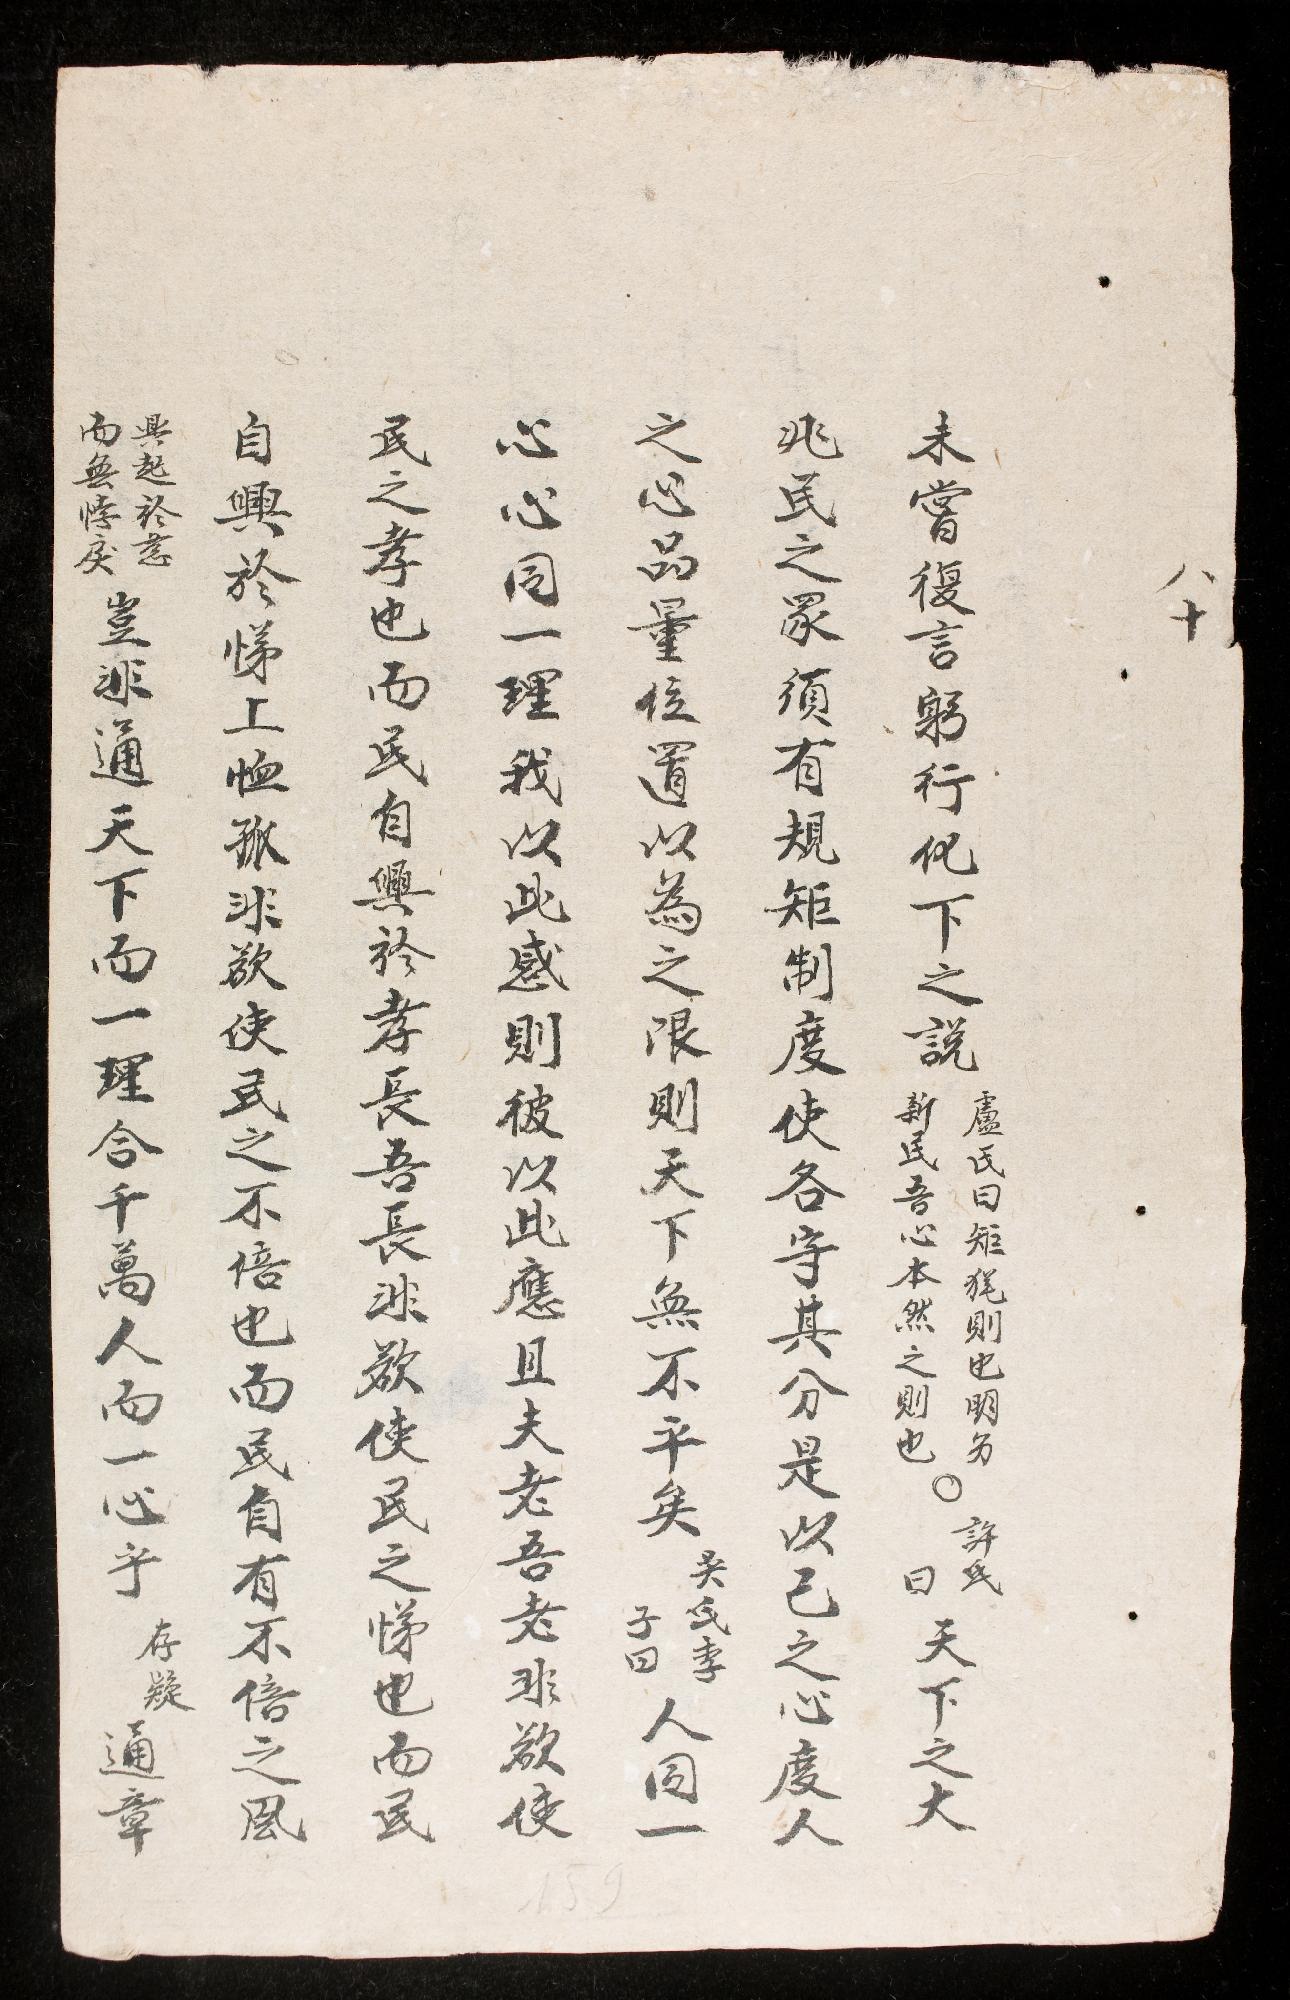 八十
未嘗復言躬行化下之説盧氏曰矩猶則也明另新民吾心本然之則也〇許氏曰天下之大
兆民之眾須有規矩制度使各字其分是以己之心度人
之心品量位置以為之限則天下無不平矣吳氏季子曰人同一
心心同一理我以此感則彼以此應且夫老吾老非欲使
民之孝也而民自興於孝長吾長非欲使民之悌也而民
自興於悌上恤孤非欲使民之不倍也而民自有不倍之風
興起於慈而無悖戾豈非通天下而一理合千萬人而一心乎存疑通章
159